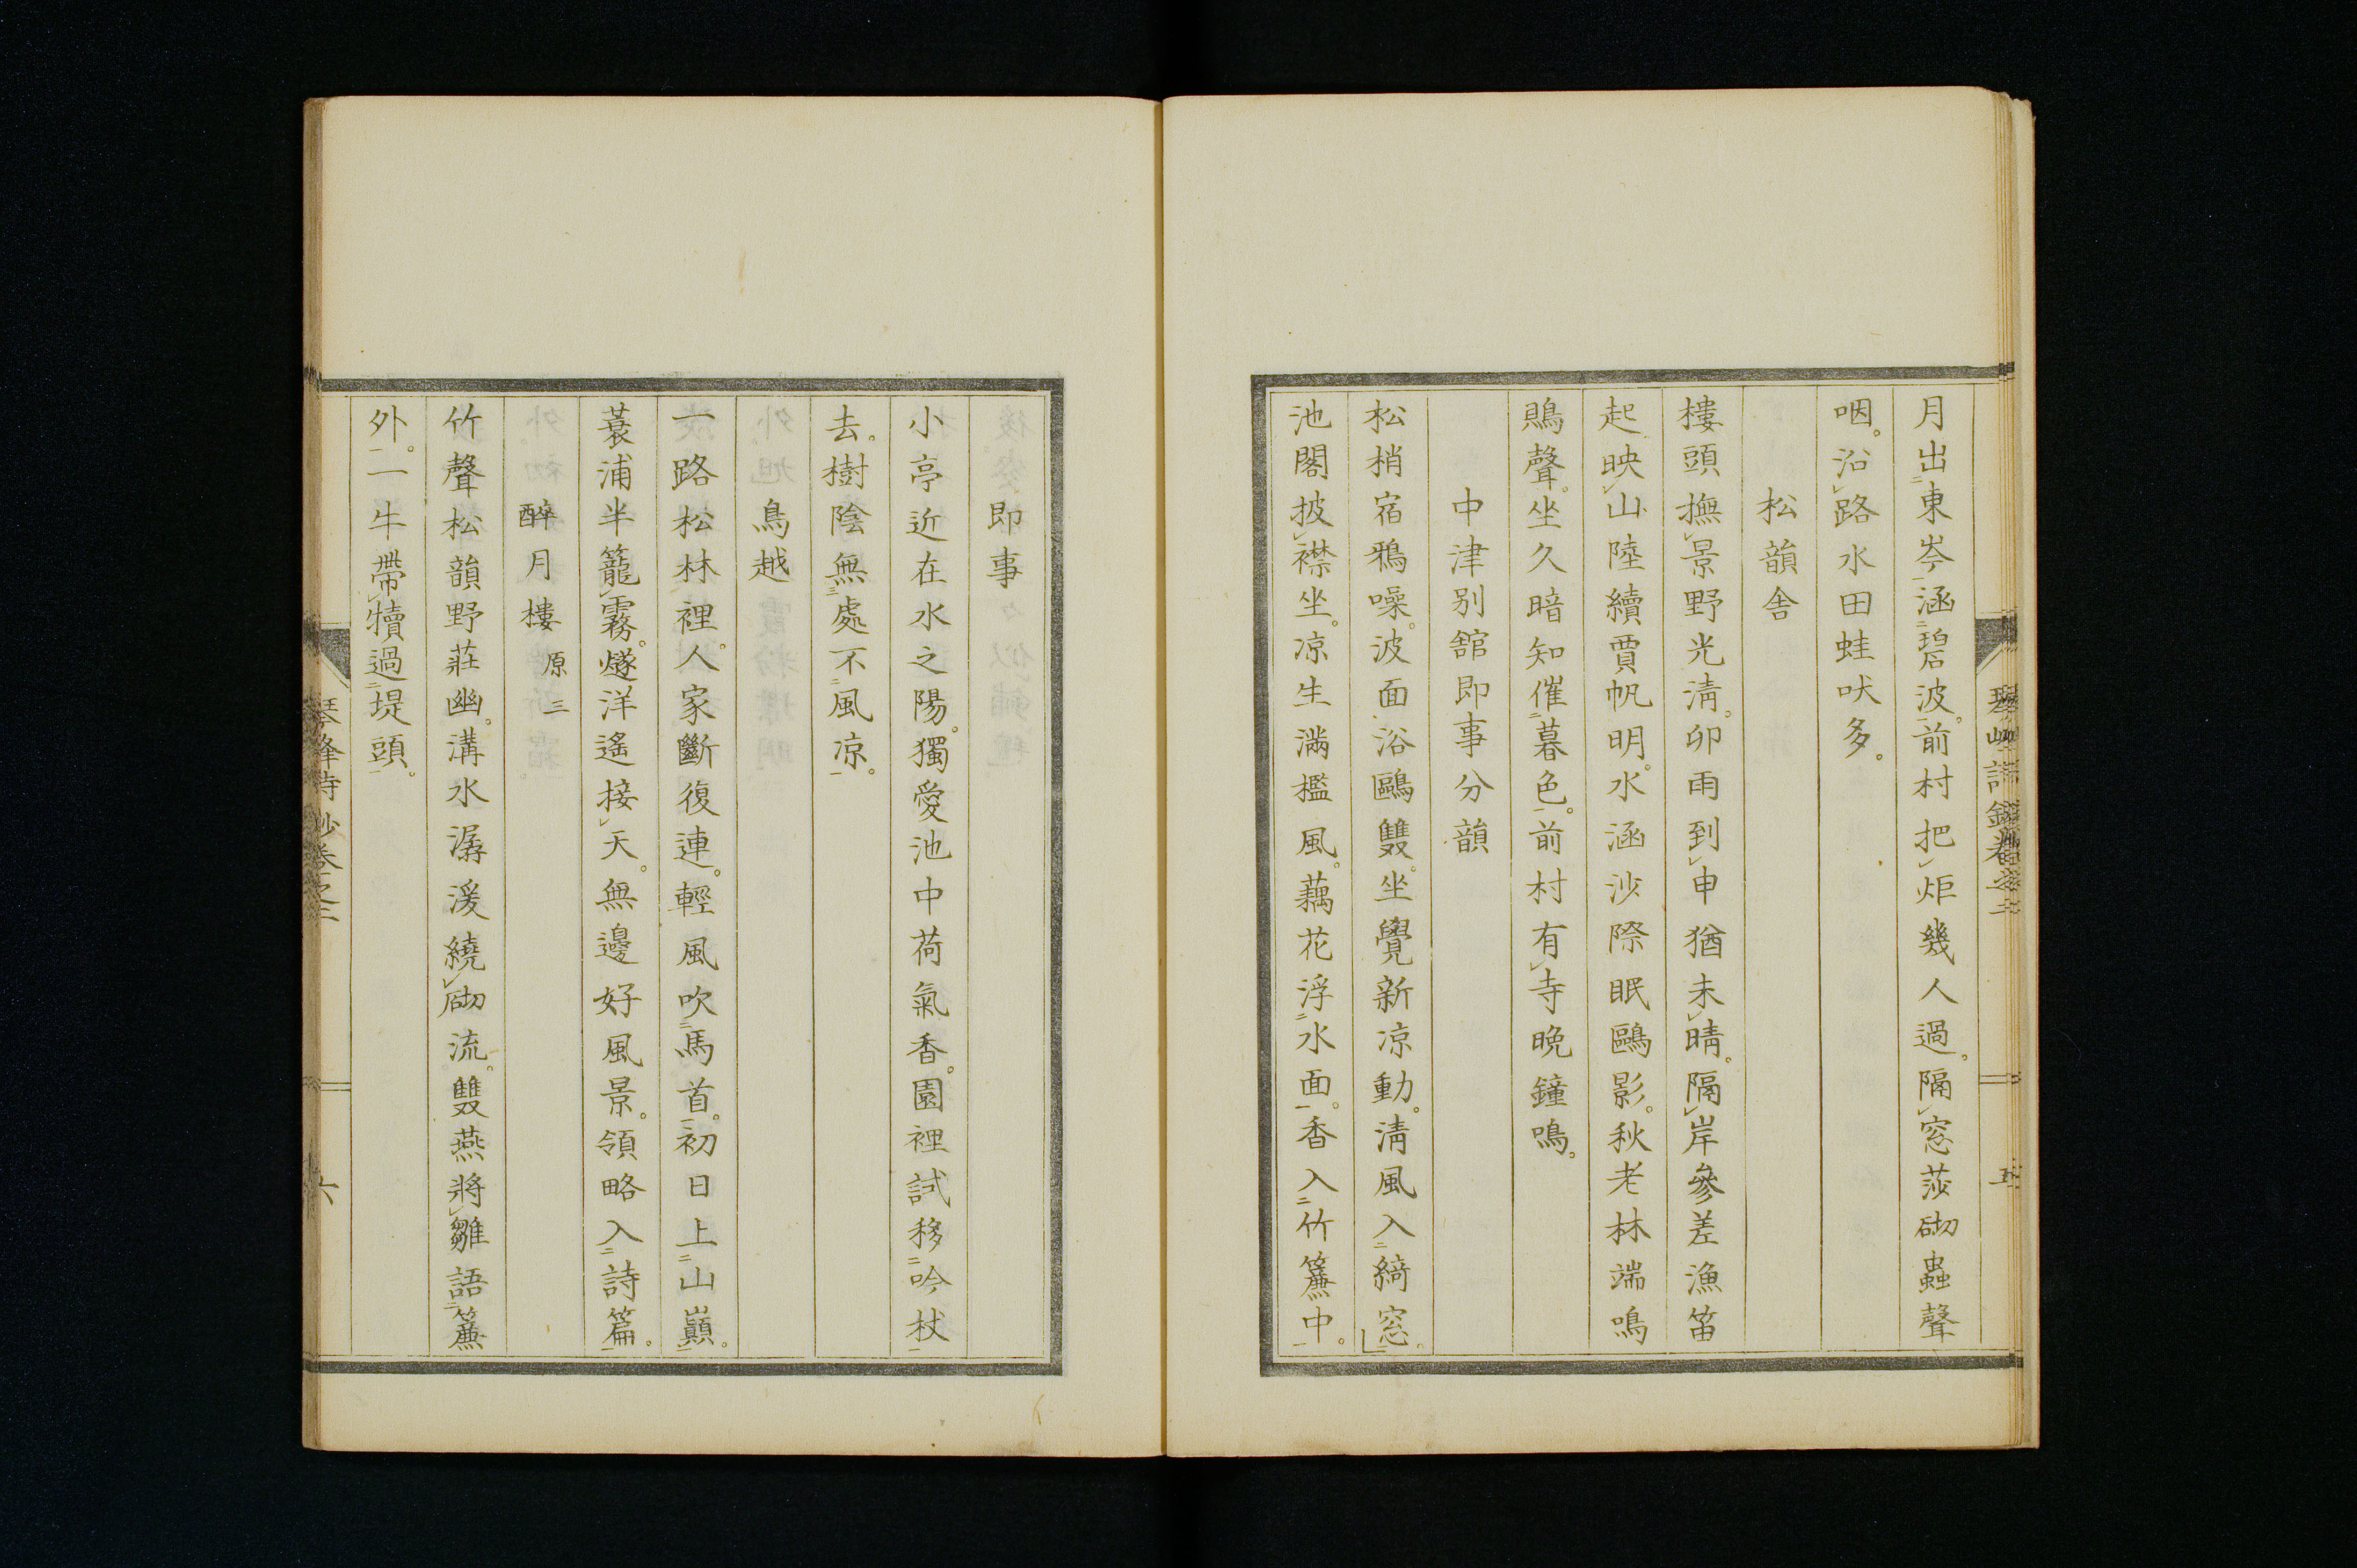 月出東岑涵碧波。前村把炬幾人過。隔窓莎砌蟲聲
咽。沿路水田蛙吠多。
松韻舎
樓頭撫景野光淸。卯雨到申猶未晴。隔岸參差漁笛
起映山陸續賈帆明。水涵沙際眠鷗影。秋老林端鳴
鵙聲。坐久暗知催暮色。前村有寺晩鐘鳴。
中津別舘即事分韻
松梢宿鴉噪。波面浴鷗雙。坐覺新凉動。淸風入綺窓。
池閣披襟坐。凉生滿檻風。藕花浮水面。香入竹簾中。
五
即事
小亭近在水之陽。獨愛池中荷氣香。園裡試移吟杖
去。樹陰無處不風凉。
鳥越
一路松林裡。人家斷復連。輕風吹馬首。初日上山巓。
蓑浦半籠霧。燧洋遙接天。無邊好風景。領略入詩篇。
醉月樓 原三
竹聲松韻野莊幽。溝水潺湲繞砌流。雙燕將雛語簾
外。一牛帶犢過堤頭。
琴峰詩鈔卷之二
六